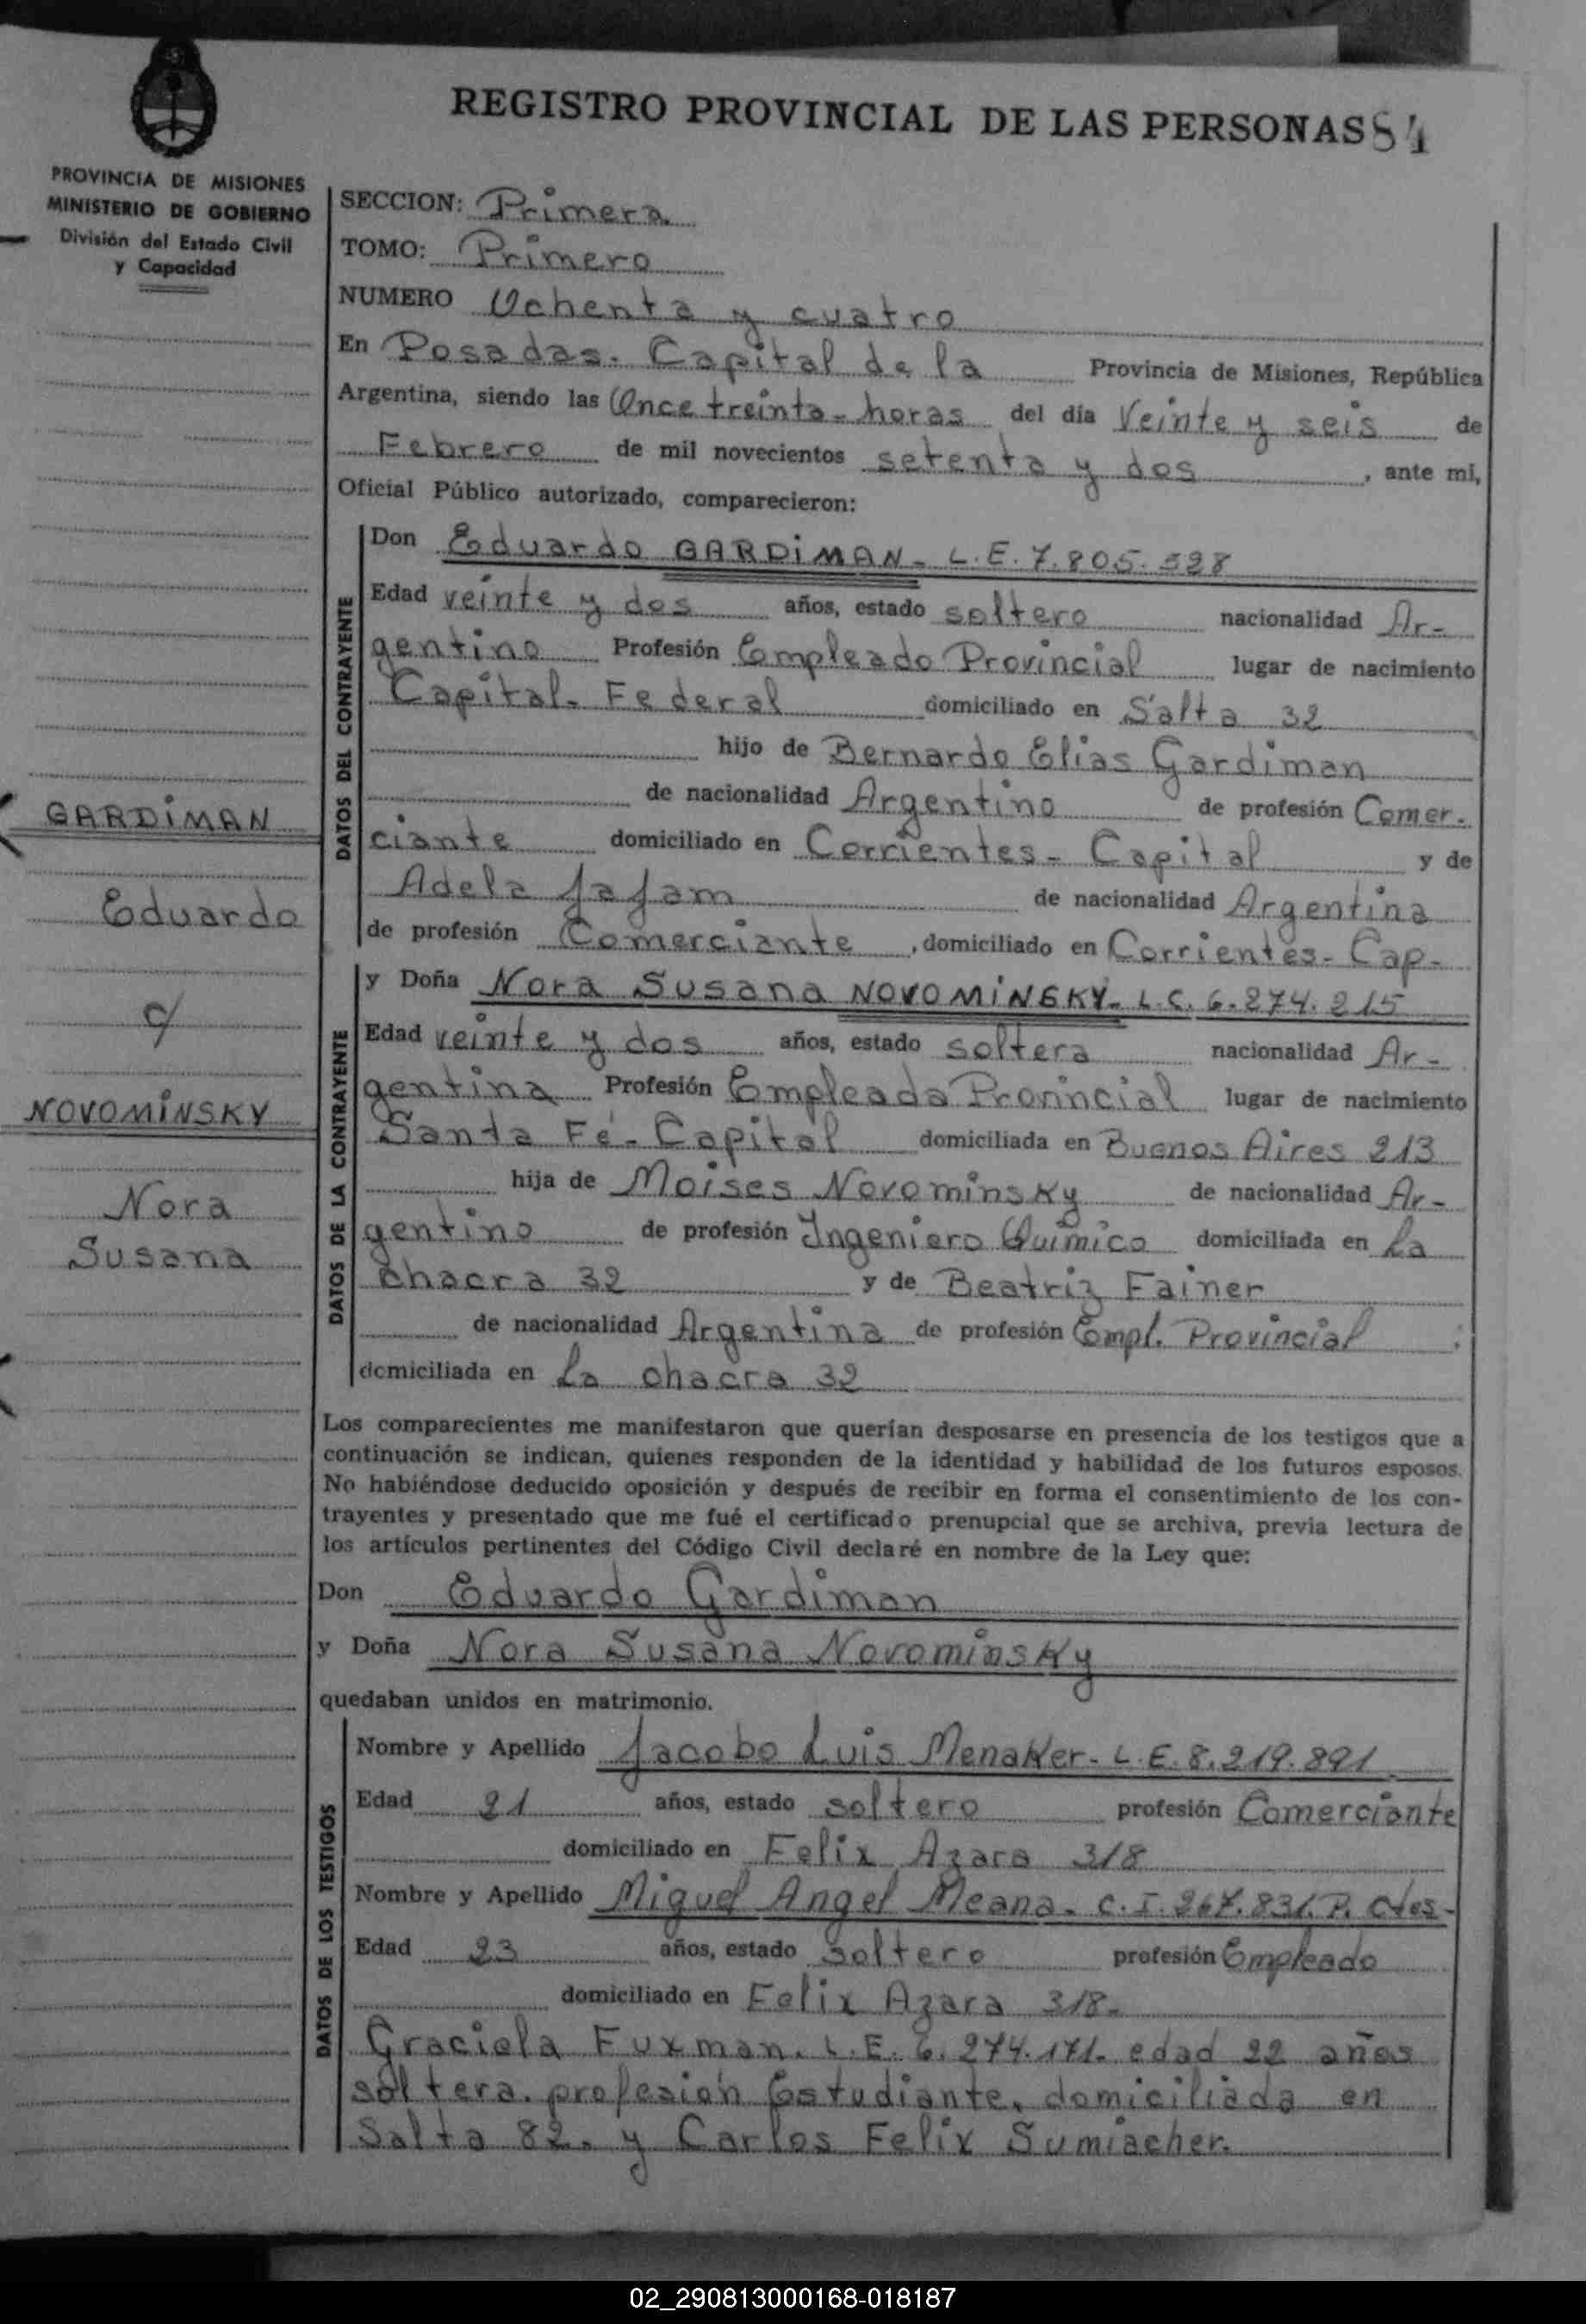 REGISTRO PROVINCIAL DE LAS PERSONAS 84
PROVINCIA DE MISIONES
MINISTERIO DE GOBIERNO
División del Estado Civil
y Capacidad
GARDIMAN
Eduardo
c/
NOVOMINSKY
Nora
Susana
SECCION: Primera
TOMO: Primero
NUMERO Ochenta y cuatro
En Posadas. Capital de la Provincia de Misiones, República
Argentina, siendo las Once treinta horas del día Veinte y seis de
Febrero de mil novecientos setenta y dos, ante mi,
Oficial Público autorizado, comparecieron:
DATOS DEL CONTRAYENTE
Don Eduardo GARDIMAN - L.E. 7.805.528
Edad veinte y dos años, estado soltero nacionalidad Ar-
gentino Profesión Empleado Provincial lugar de nacimiento
Capital. Federal domiciliado en Salta 32
hijo de Bernardo Elias Gardiman
de nacionalidad Argentino de profesión Comer-
ciante domiciliado en Corrientes - Capital y de
Adela Jajam de nacionalidad Argentina
de profesión Comerciante, domiciliado en Corrientes - Cap-
DATOS DE LA CONTRAYENTE
y Doña Nora Susana NOVOMINSKY - L.C. 6.274.215
Edad veinte y dos años, estado soltera nacionalidad Ar-
gentina Profesión Empleada Provincial lugar de nacimiento
Santa Fé - Capital domiciliada en Buenos Aires 213
hija de Moises Novominsky de nacionalidad Ar-
gentino de profesión Ingeniero Químico domiciliada en La
chacra 32 y de Beatriz Fainer
de nacionalidad Argentina de profesión Empl. Provincial
domiciliada en La chacra 32
Los comparecientes me manifestaron que querían desposarse en presencia de los testigos que a
continuación se indican, quienes responden de la identidad y habilidad de los futuros esposos.
No habiéndose deducido oposición y después de recibir en forma el consentimiento de los con-
trayentes y presentado que me fué el certificado prenupcial que se archiva, previa lectura de
los artículos pertinentes del Código Civil declaré en nombre de la Ley que:
Don Eduardo Gardiman
y Doña Nora Susana Novominsky
quedaban unidos en matrimonio.
DATOS DE LOS TESTIGOS
Nombre y Apellido Jacobo Luis Menaker - L.E. 8.219.891
Edad 21 años, estado soltero profesión Comerciante
domiciliado en Felix Azara 318
Nombre y Apellido Miguel Angel Meana. C.I. 267.831. P. Ctes-
Edad 23 años, estado soltero profesión Empleado
domiciliado en Felix Azara 318-
Graciela Fuxman. L.E. 6.274.171. edad 22 años
soltera. profesión Estudiante. domiciliada en
Salta 82. y Carlos Felix Sumiacher.
02_290813000168-018187